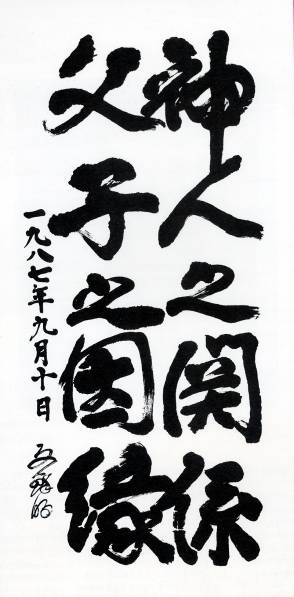 神人之関係
父子之因緣
一九八七年九月十日
文鮮明